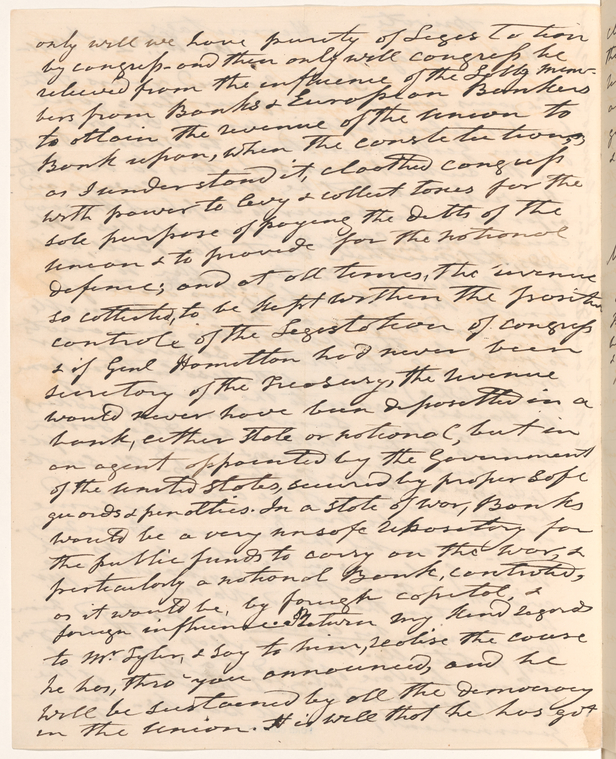 only will we have purity of Legislation
by congress. and then only will congress be
relieved from the influence of the Lobby mem-
bers from Banks & European Bankers
to obtain the revenue of the union to
Bank upon, when the constitution,
as I understand it, cloathed congress
with power to levy & collect taxes for the
sole purpose of paying the debts of the
union & to provide for the national
defence; and at all times, the revenue
so collected, to be kept within the
controle of the Legislation of congress
& if Genl Hamilton had never been
secretary of the Treasury, the revenue
would never have been deposited in a
bank, either state or national, but in
an agent appointed by the Government
of the united states, secured by proper safe
guards & penalties. In a state of war, Banks
would be a very unsafe repository for
the public funds to carry on the war, &
particularly a national Bank, controled,
as it would be, by foreign capital, &
foreign influence. Return my kind regards
to Mr Tyler, & say to him, realise the course
he has, thro' you announced, and he
will be sustained by all the democracy
in the union. It is well that he has got